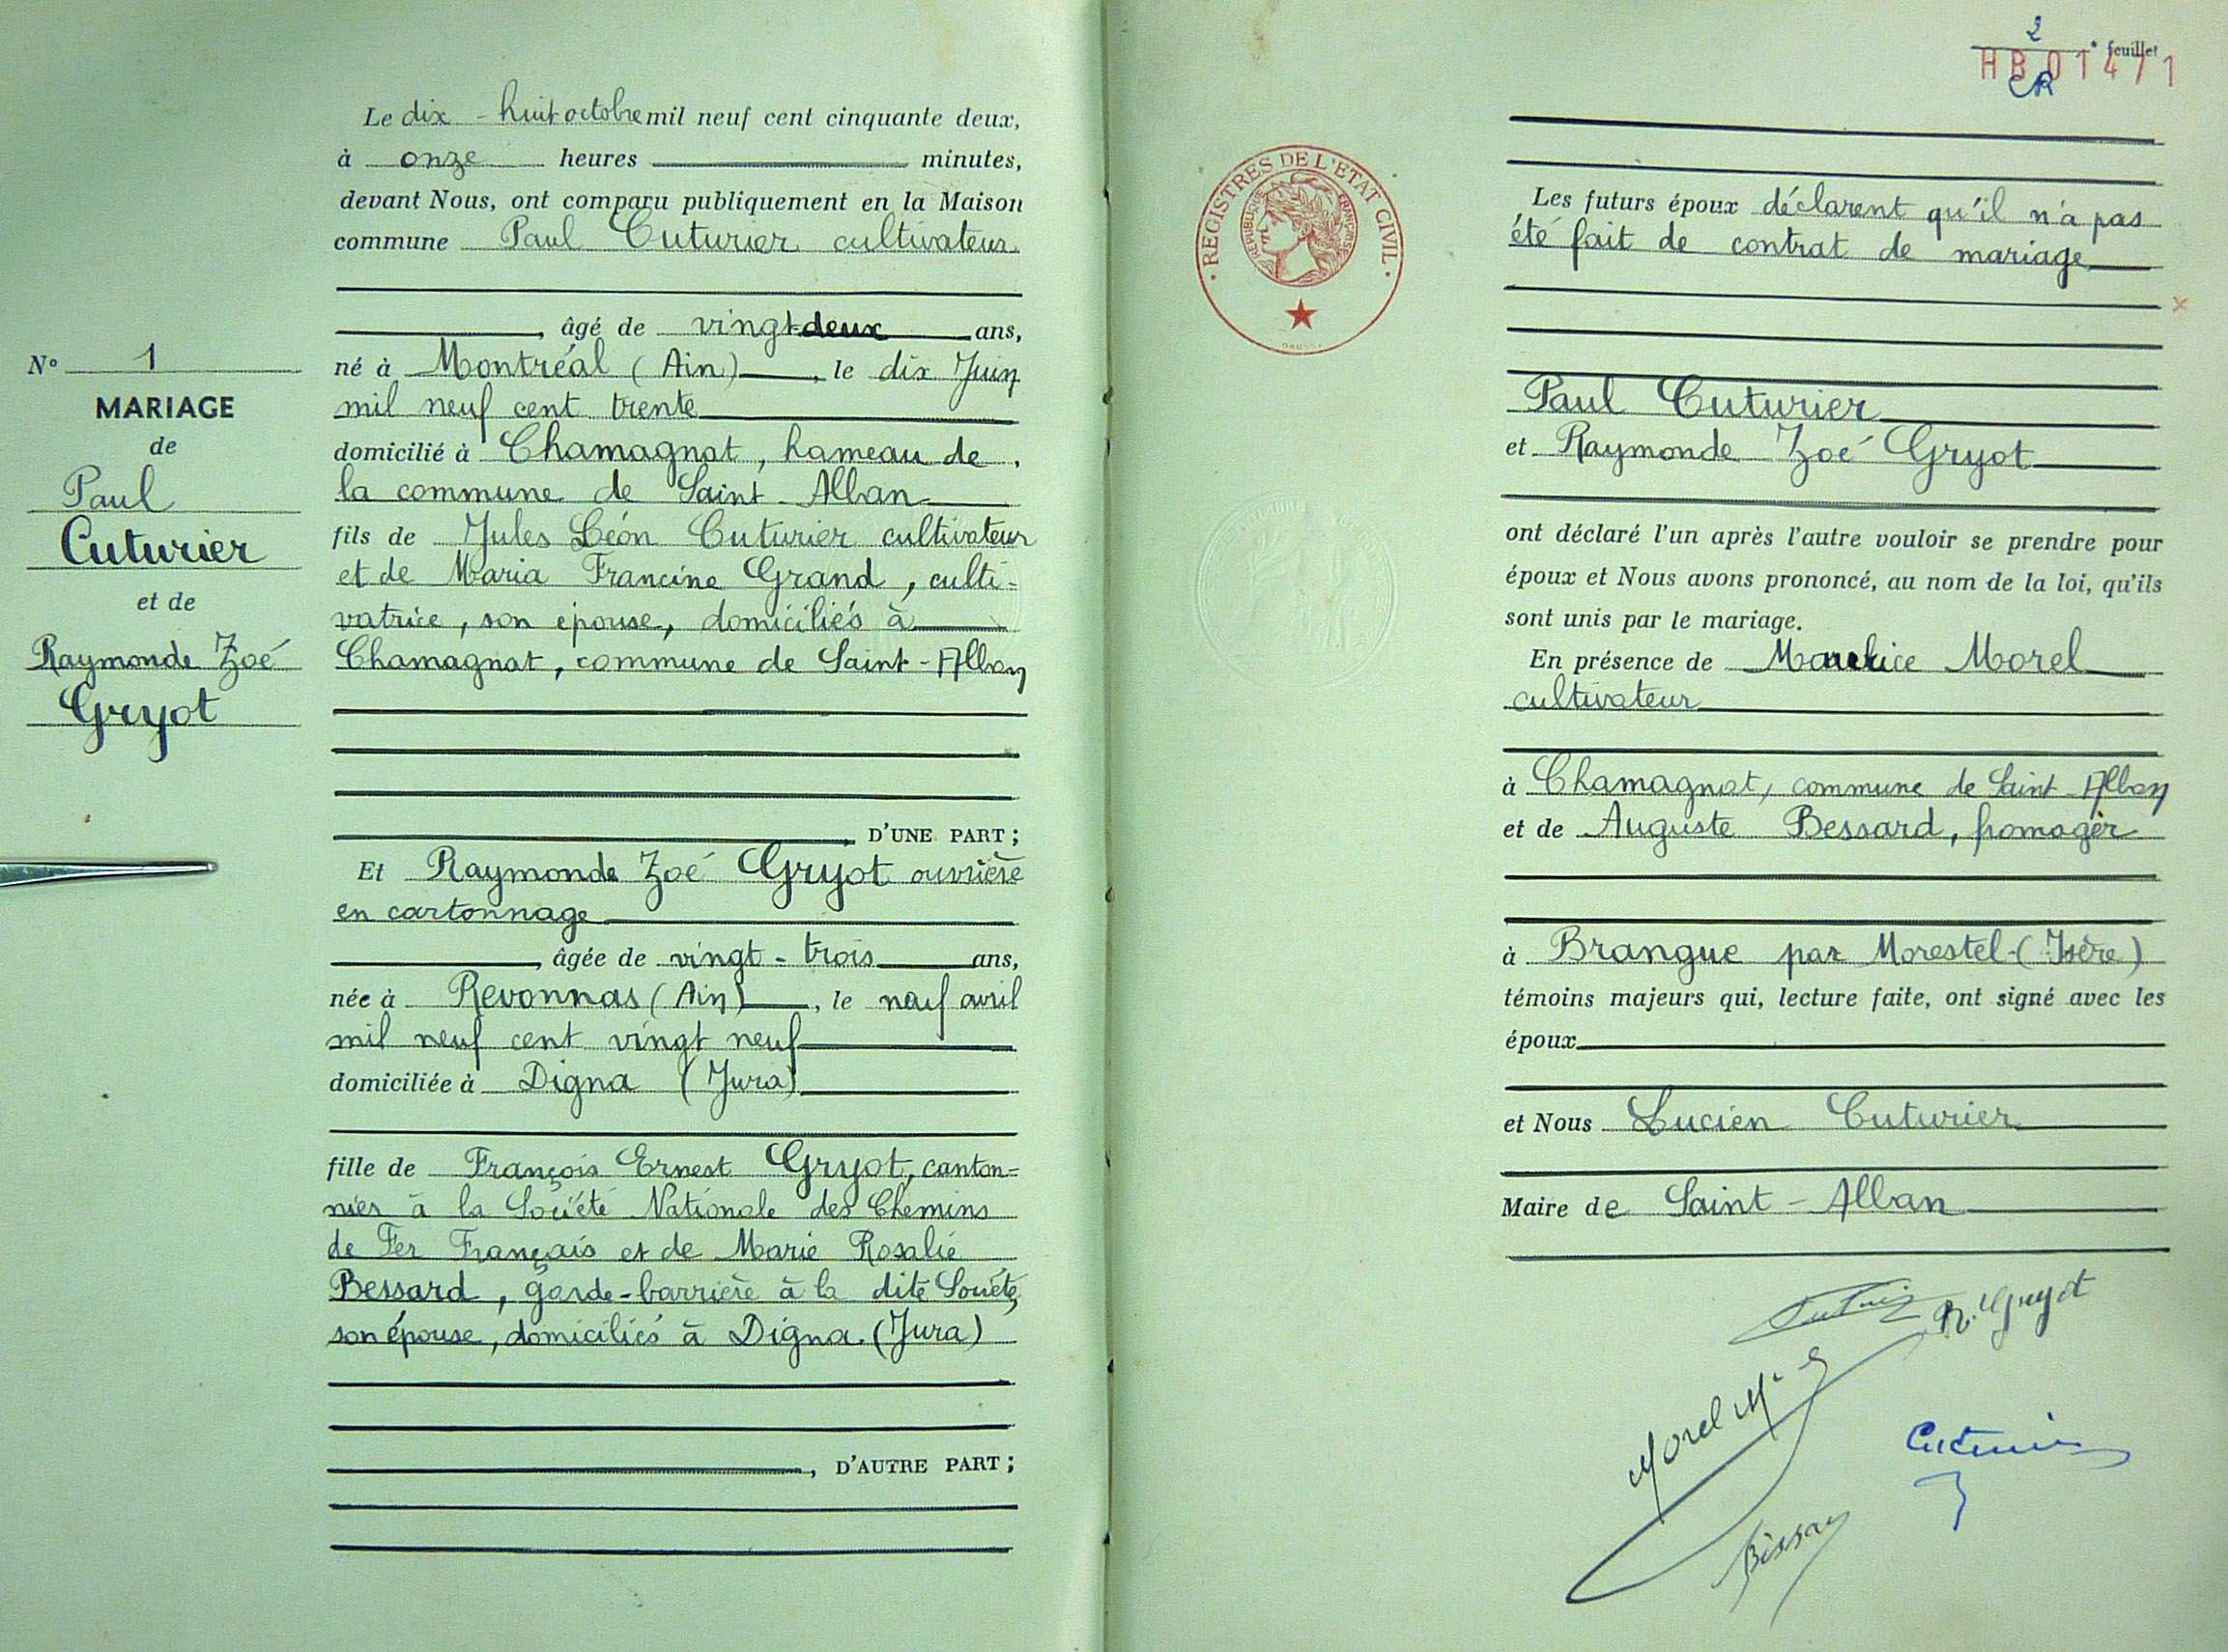 Le dix-huit octobre mil neuf cent cinquante deux,
à onze heures minutes,
devant Nous, ont comparu publiquement en la Maison
commune Paul Cuturier cultivateur
, âgé de vingt deux ans,
né à Montréal (Ain), le dix Juin
mil neuf cent trente
domicilié à Chamagnat, hameau de
la commune de Saint-Alban
fils de Jules Léon Cuturier cultivateur
et de Maria Francine Grand, culti-
vatrice, son épouse, domiciliés à
Chamagnat, commune de Saint-Alban
D'UNE PART ;
Et Raymonde Zoé Gryot ouvrière
en cartonnage
, âgée de vingt-trois ans,
née à Revonnas (Ain), le neuf avril
mil neuf cent vingt neuf
domiciliée à Digna (Jura)
fille de François Ernest Gryot, canton=
nier à la Société Nationale des Chemins
de Fer Français et de Marie Rosalie
Bessard, garde-barrière à la dite Société,
son épouse, domiciliés à Digna. (Jura)
, D'AUTRE PART ;
N° 1
MARIAGE
de
Paul
Cuturier
et de
Raymonde Zoé
Gryot
2e feuillet
HB 01471
CR
· REGISTRES DE L'ETAT CIVIL ·
REPUBLIQUE FRANÇAISE
Les futurs époux déclarent qu'il n'a pas
été fait de contrat de mariage
Paul Cuturier
et Raymonde Zoé Gryot
ont déclaré l'un après l'autre vouloir se prendre pour
époux et Nous avons prononcé, au nom de la loi, qu'ils
sont unis par le mariage.
En présence de Maurice Morel
cultivateur
à Chamagnat, commune de Saint-Alban
et de Auguste Bessard, fromager
à Brangue par Morestel (Isère)
témoins majeurs qui, lecture faite, ont signé avec les
époux
et Nous Lucien Cuturier
Maire de Saint-Alban
R. Gryot
Morel M.
Cuturier